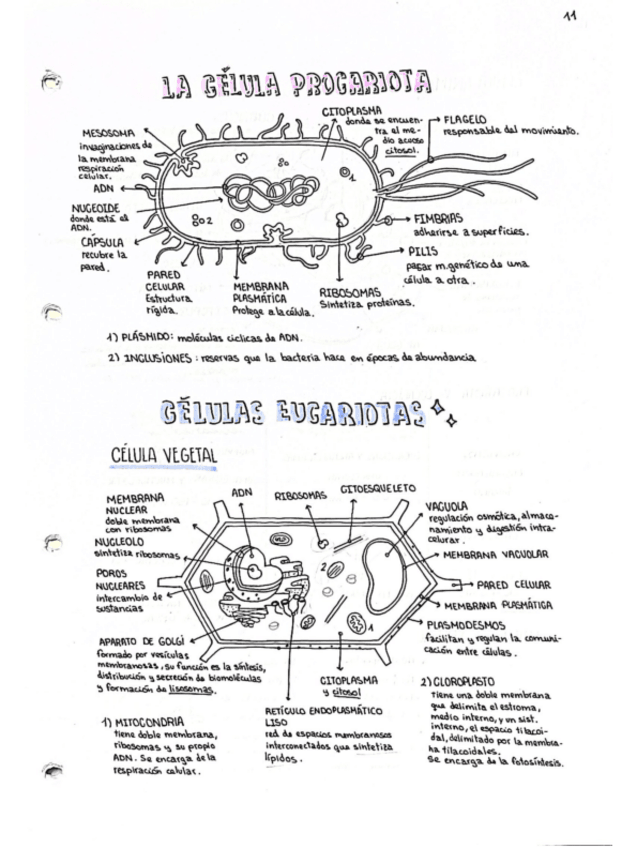 11
LA CÉLULA PROCARIOTA
MESOSOMA
invaginaciones de
la membrana
respiración
celular.
ADN
NUCEOIDE
donde está el
ADN.
CÁPSULA
recubre la
pared.
CITOPLASMA
donde se encuen-
tra el me-
dio acuoso
citosol.
FLAGELO
responsable del movimiento.
1
2
FIMBRIAS
adherirse a superficies.
PILIS
pasar m.genético de una
célula a otra.
PARED
CELULAR
Estructura
rígida.
MEMBRANA
PLASMÁTICA
Protege a la célula.
RIBOSOMAS
Sintetiza proteínas.
1) PLÁSMIDO: moléculas cíclicas de ADN.
2) INCLUSIONES: reservas que la bacteria hace en épocas de abundancia
CÉLULAS EUCARIOTAS
CÉLULA VEGETAL
MEMBRANA
NUCLEAR
doble membrana
con ribosomas
NUCLEOLO
sintetiza ribosomas
POROS
NUCLEARES
intercambio de
sustancias
APARATO DE GOLGI
formado por vesículas
membranosas, su función es la síntesis,
distribución y secreción de biomoléculas
y formación de lisosomas.
ADN
RIBOSOMAS
CITOESQUELETO
2
1
VACUOLA
regulación osmótica, almace-
namiento y digestión intra-
celurar.
MEMBRANA VACUOLAR
PARED CELULAR
MEMBRANA PLASMÁTICA
PLASMODESMOS
facilitan y regulan la comuni-
cación entre células.
CITOPLASMA
y citosol
RETÍCULO ENDOPLASMÁTICO
LISO
red de espacios membranosos
interconectados que sintetiza
lípidos.
1) MITOCONDRIA
tiene doble membrana,
ribosomas y su propio
ADN. Se encarga de la
respiración celular.
2) CLOROPLASTO
tiene una doble membrana
que delimita el estroma,
medio interno, y un sist.
interno, el espacio tilacoi-
dal, delimitado por la membra-
na tilacoidales.
Se encarga de la fotosíntesis.